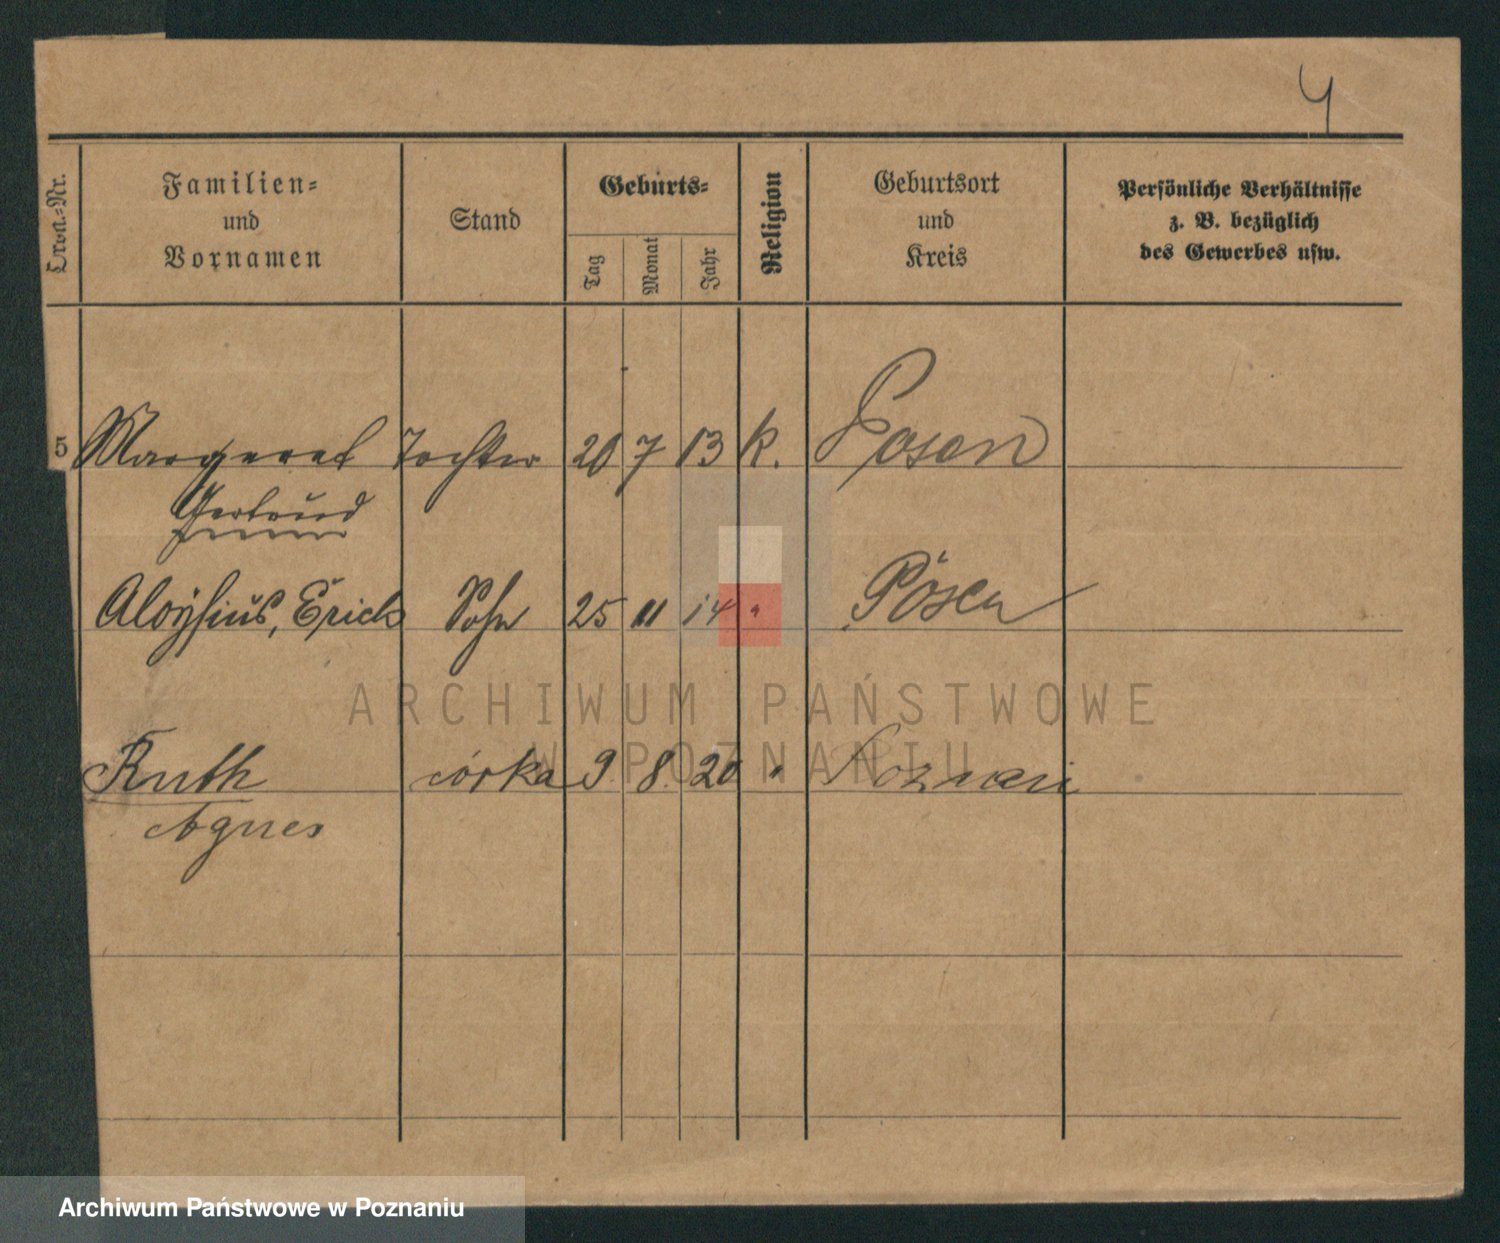 4
Ordn.=Nr.
Familien=
und
Vornamen
Stand
Geburts=
Tag
Monat
Jahr
Religion
Geburtsort
und
Kreis
Persönliche Verhältnisse
z. B. bezüglich
des Gewerbes usw.
5 Margaret Tochter 20 7 13 k. Posen
Gertrud
Aloÿsius, Erich Sohn 25 11 14 " Posen
ARCHIWUM PAŃSTWOWE
W POZNANIU
Ruth córka 9. 8. 20 " Poznań
Agnes
Archiwum Państwowe w Poznaniu